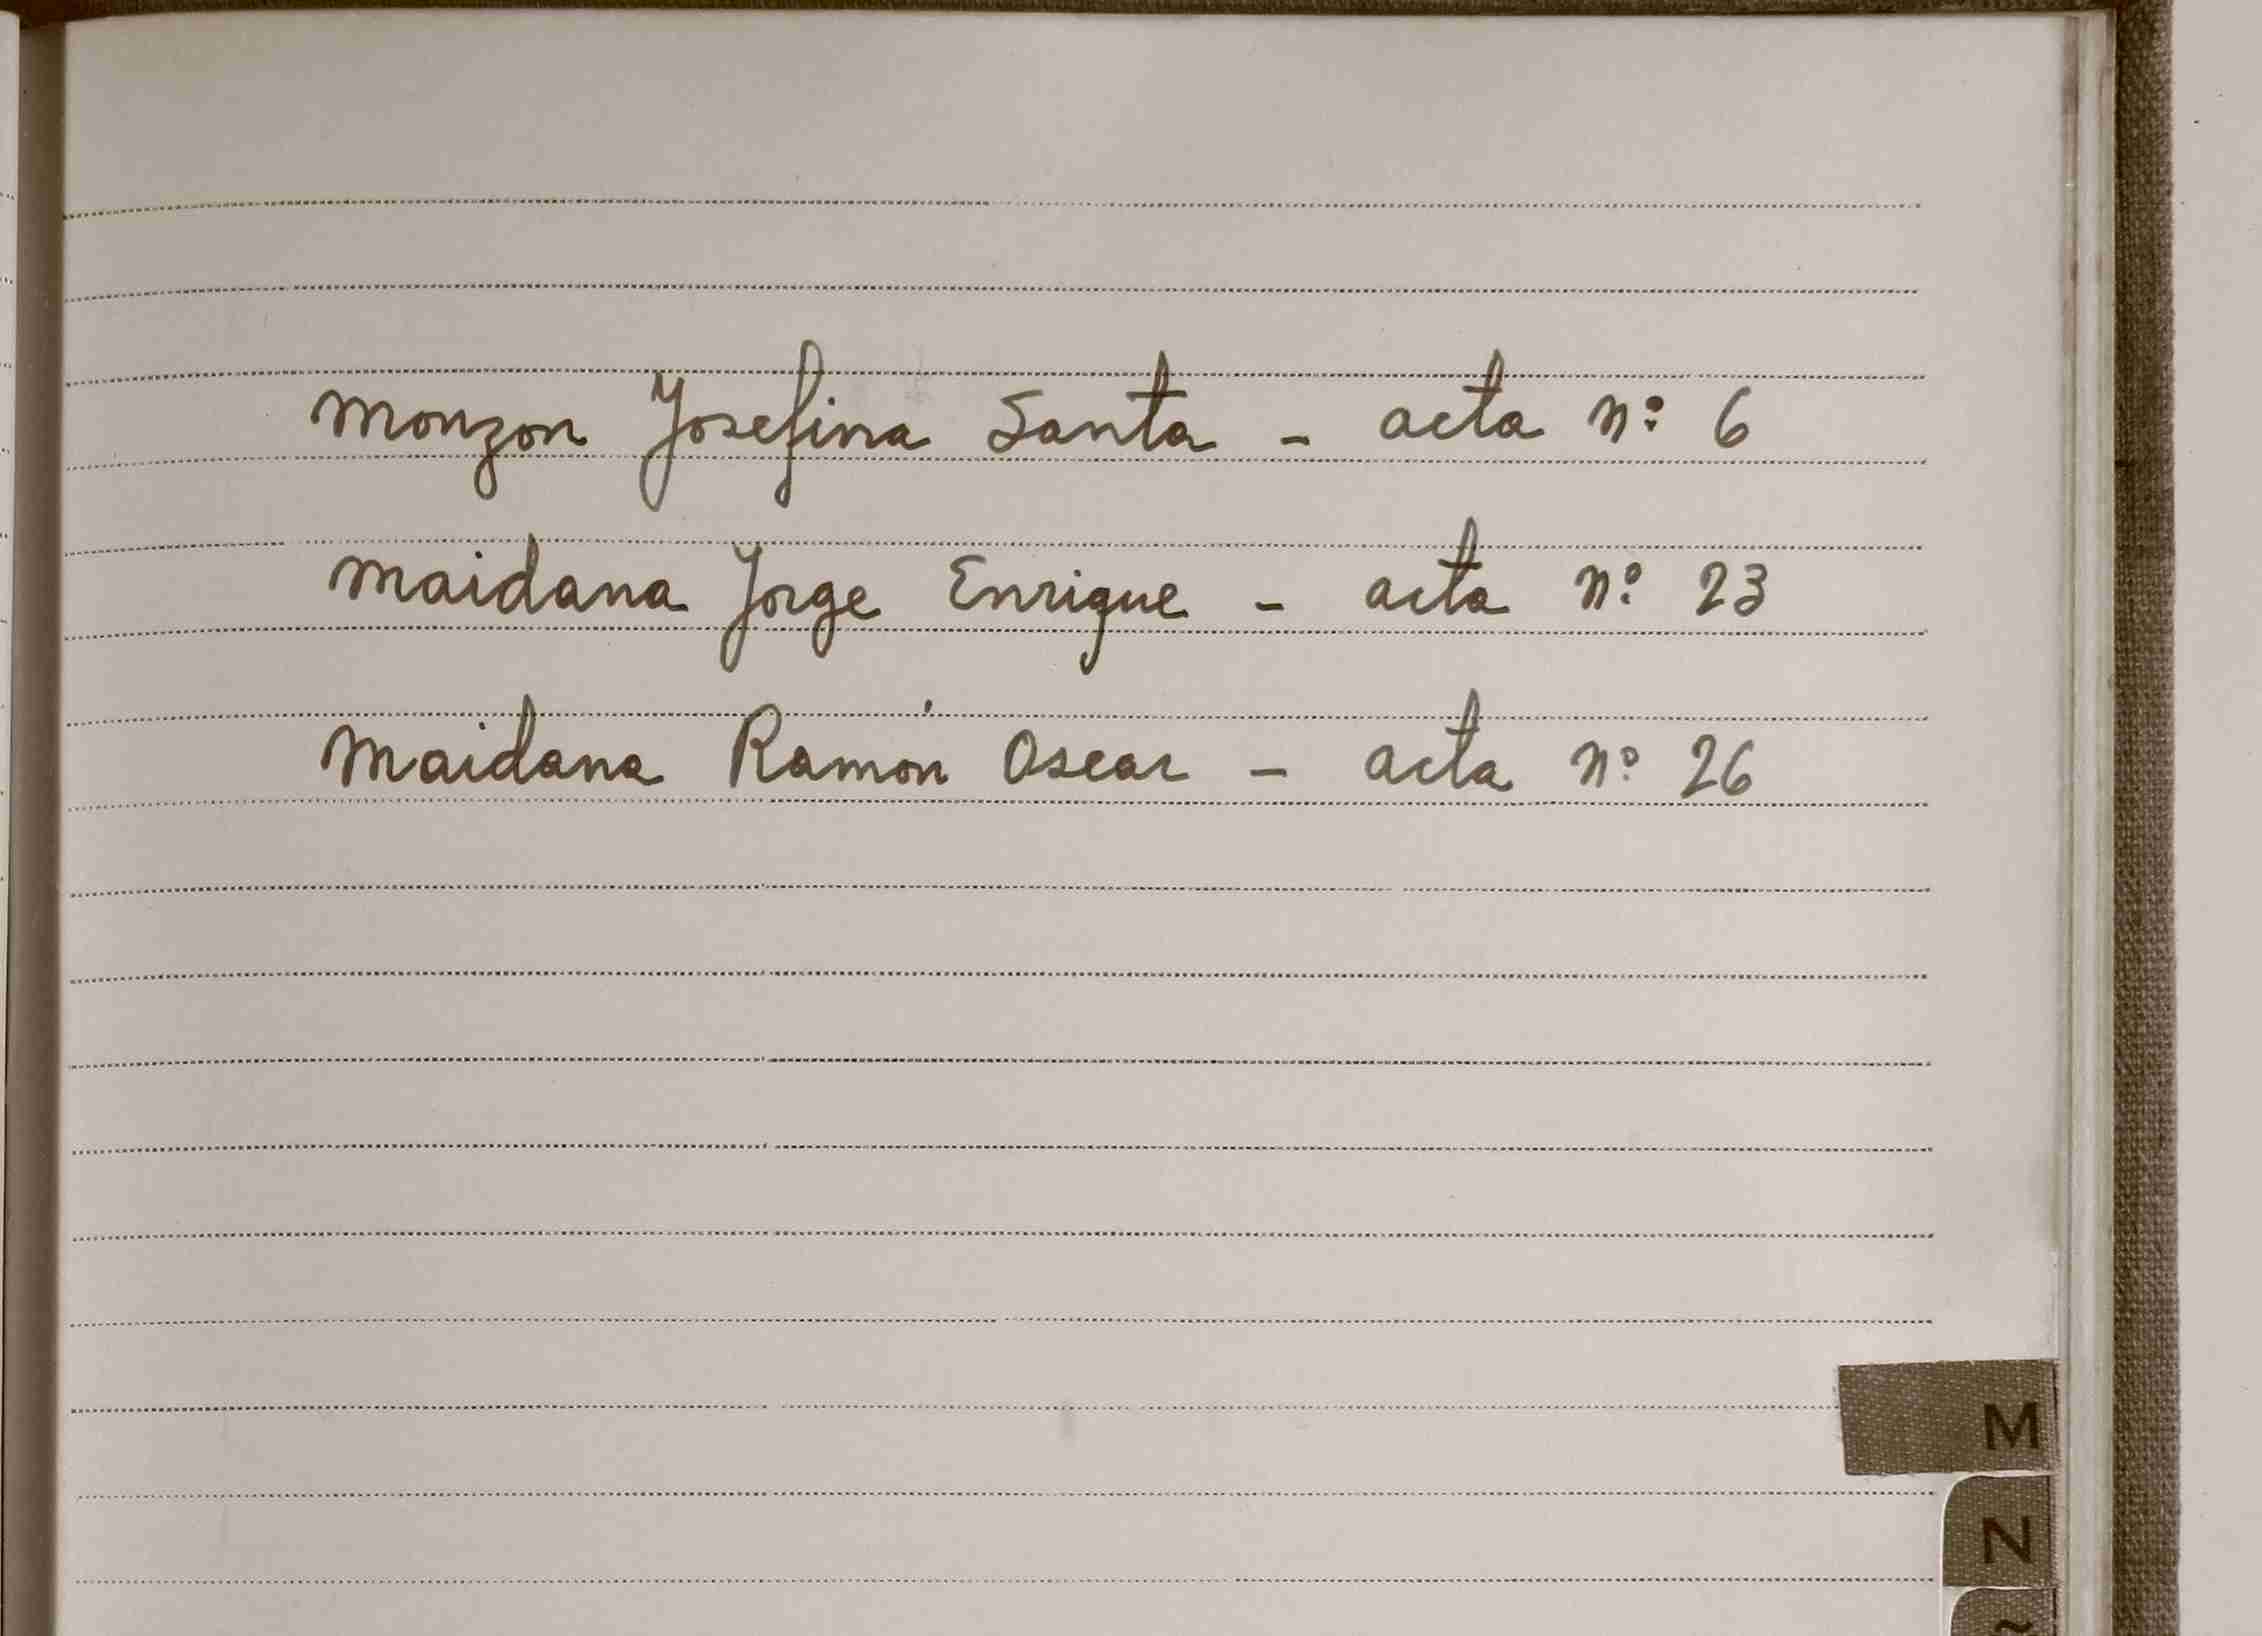 Monzon Josefina Santa - acta nº 6
Maidana Jorge Enrique - acta nº 23
Maidana Ramón Oscar - acta nº 26
M
N